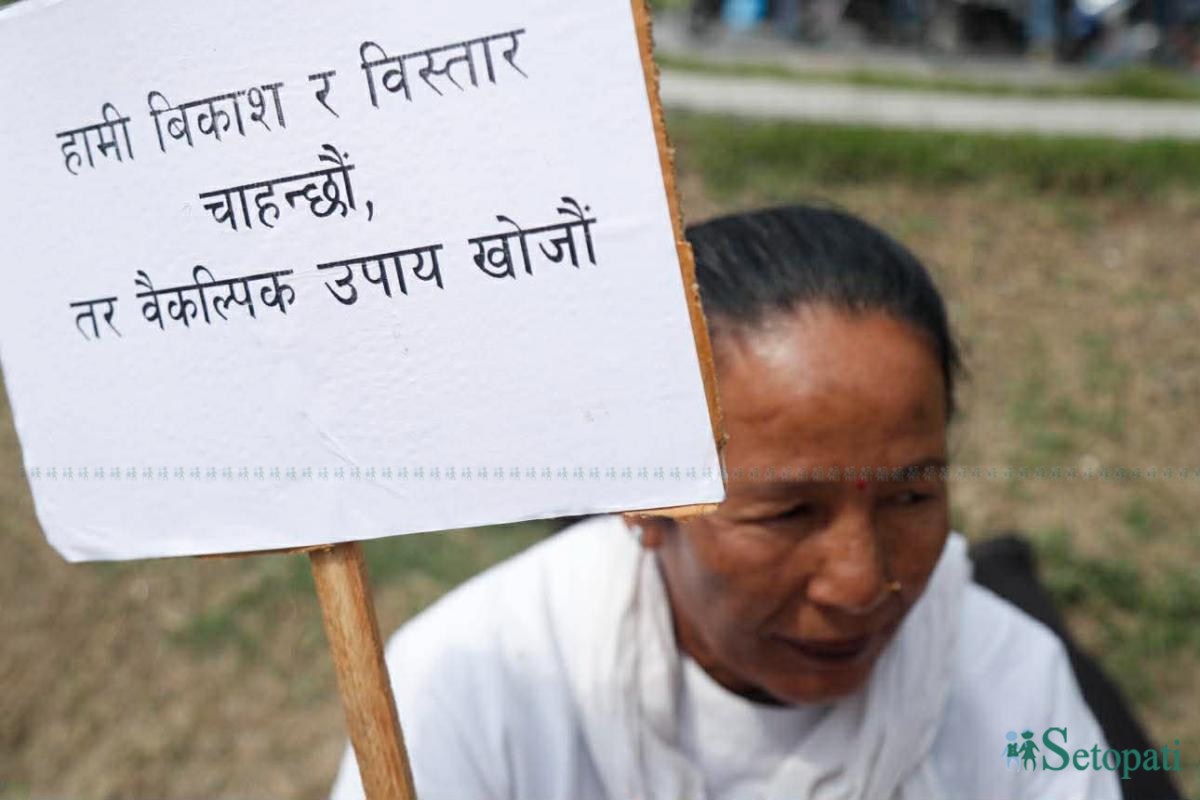 हामी बिकाश र विस्तार
चाहन्छौं,
तर वैकल्पिक उपाय खोजौं
Setopati